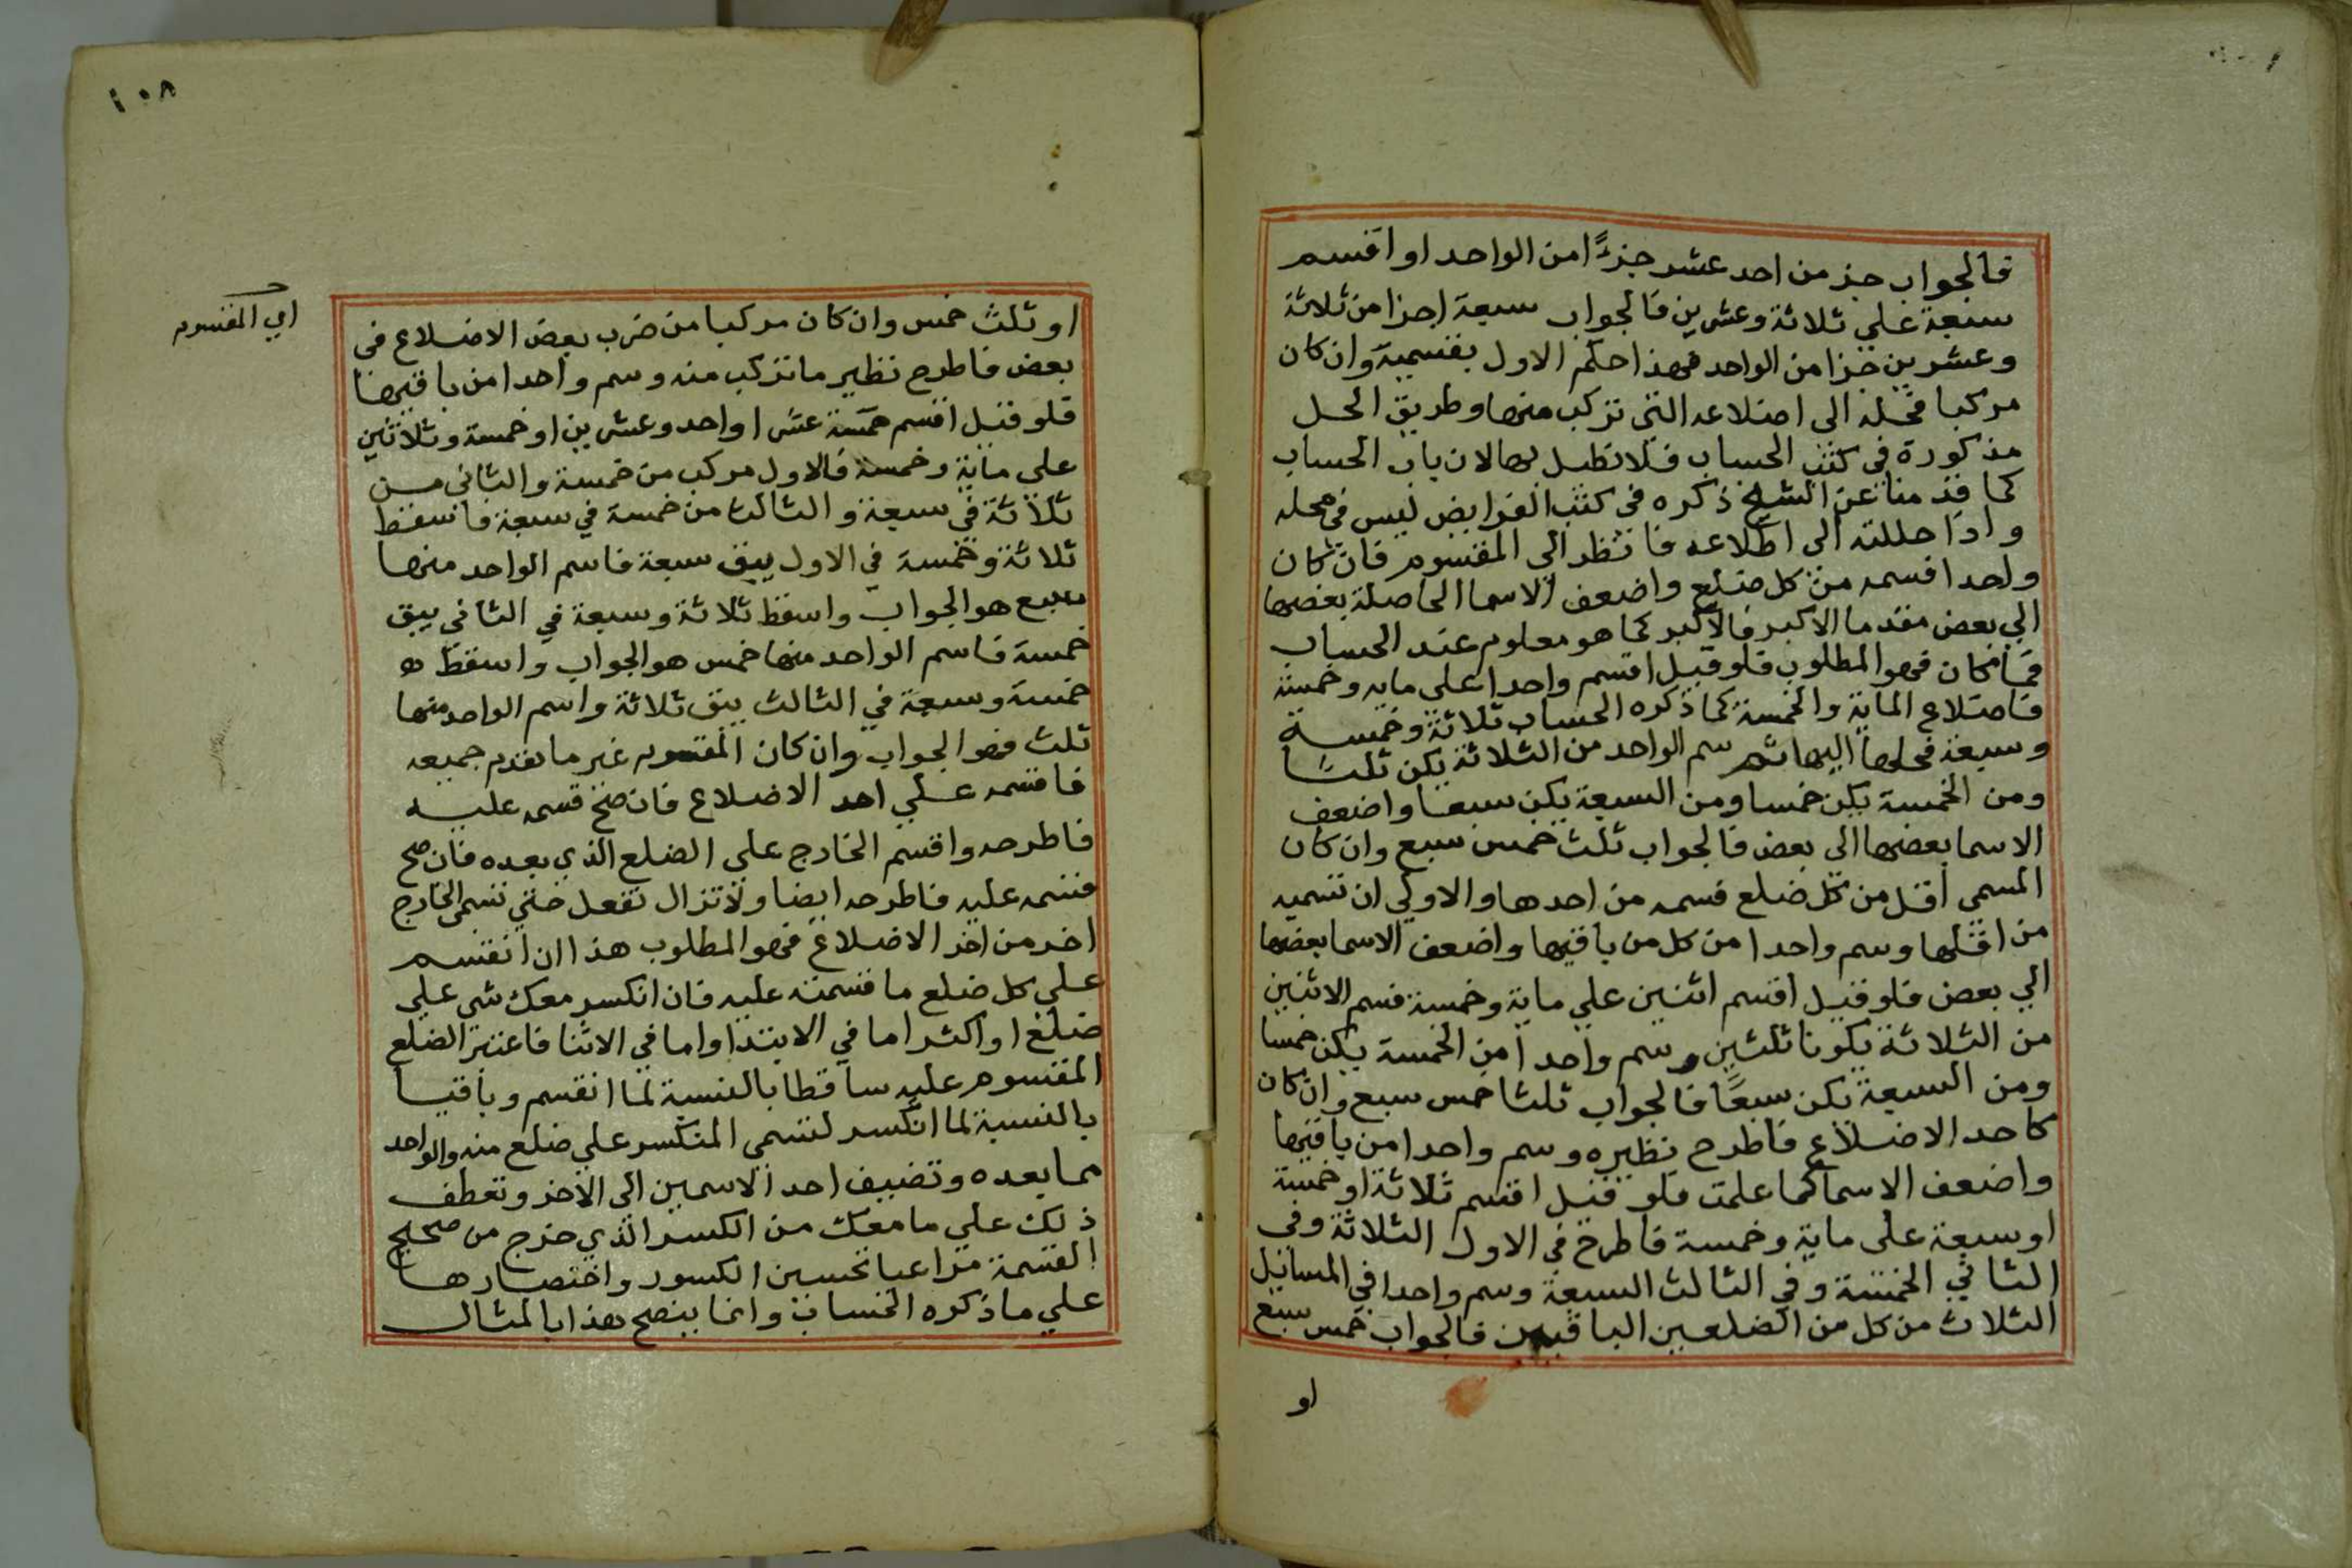 فالجواب جز من احد عشر جزءًا من الواحد او اقسم
سبعة علي ثلاثة وعشرين فالجواب سبعة اجزا من ثلاثة
وعشرين جزا من الواحد فهذا حكم الاول بقسميه وان كان
مركبا فحله الى اضلاعه التي تركب منها وطريق الحل
مذكورة في كتب الحساب فلا نطيل بها لان باب الحساب
كما قدمنا عن الشيخ ذكره في كتب الفرايض ليس في محله
واذا حللته الى اضلاعه فانظر الى المقسوم فان كان
واحدا فسمه من كل ضلع واضعف الاسما الحاصلة بعضها
الي بعض مقدما الاكبر فالاكبر كما هو معلوم عند الحساب
فما كان فهو المطلوب فلو قيل اقسم واحدا علي مايه وخمسة
فاضلاع الماية والخمسة كما ذكره الحساب ثلاثة وخمسة
وسبعة فحلها اليها ثم سم الواحد من الثلاثة يكن ثلثا
ومن الخمسة يكن خمسا ومن السبعة يكن سبعا واضعف
الاسما بعضها الي بعض فالجواب ثلث خمس سبع وان كان
المسمى اقل من كل ضلع فسمه من احدها والاولي ان تسميه
من اقلها وسم واحدا من كل من باقيها واضعف الاسما بعضها
الي بعض فلو قيل اقسم اثنين علي ماية وخمسة فسم الاثنين
من الثلاثة يكونا ثلثين وسم واحدا من الخمسة يكن خمسا
ومن السبعة يكن سبعًا فالجواب ثلثا خمس سبع وان كان
كاحد الاضلاع فاطرح نظيره وسم واحدا من باقيها
واضعف الاسما كما علمت فلو قيل اقسم ثلاثة او خمسة
او سبعة على ماية وخمسة فاطرح في الاول الثلاثة وفي
الثاني الخمسة وفي الثالث السبعة وسم واحدا في المسايل
الثلاث من كل من الضلعين الباقيين فالجواب خمس سبع
او
١٠٨
اي المقسوم
او ثلث خمس وان كان مركبا من ضرب بعض الاضلاع في
بعض فاطرح نظير ما تركب منه وسم واحدا من باقيها
فلو قيل اقسم خمسة عشر او احد وعشرين او خمسة وثلاثين
على ماية وخمسة فالاول مركب من خمسة والثاني من
ثلاثة في سبعة والثالث من خمسة في سبعة فاسقط
ثلاثة وخمسة في الاول يبق سبعة فاسم الواحد منها
سبع هو الجواب واسقط ثلاثة وسبعة في الثاني يبق
خمسة فاسم الواحد منها خمس هو الجواب واسقط
خمسة وسبعة في الثالث يبق ثلاثة واسم الواحد منها
ثلث فهو الجواب وان كان المقسوم غير ما تقدم جميعه
فاقسمه علي احد الاضلاع فان صح قسمه عليه
فاطرحه واقسم الخارج على الضلع الذي بعده فان صح
قسمه عليه فاطرحه ايضا ولا تزال تفعل حتي تسمي الخارج
اخر من اخر الاضلاع فهو المطلوب هذا ان انقسم
علي كل ضلع ما قسمته عليه فان انكسر معك شي علي
ضلع او اكثر اما في الابتدا واما في الاثنا فاعتبر الضلع
المقسوم عليه ساقطا بالنسبة لما انقسم وباقيا
بالنسبة لما انكسر لتسمى المنكسر علي ضلع منه والواحد
مما بعده وتضيف احد الاسمين الى الاخر وتعطف
ذلك علي ما معك من الكسر الذي خرج من صحيح
القسمة مراعيا تحسين الكسور واختصارها
علي ما ذكره الحساب وانما يتضح هذا بالمثال